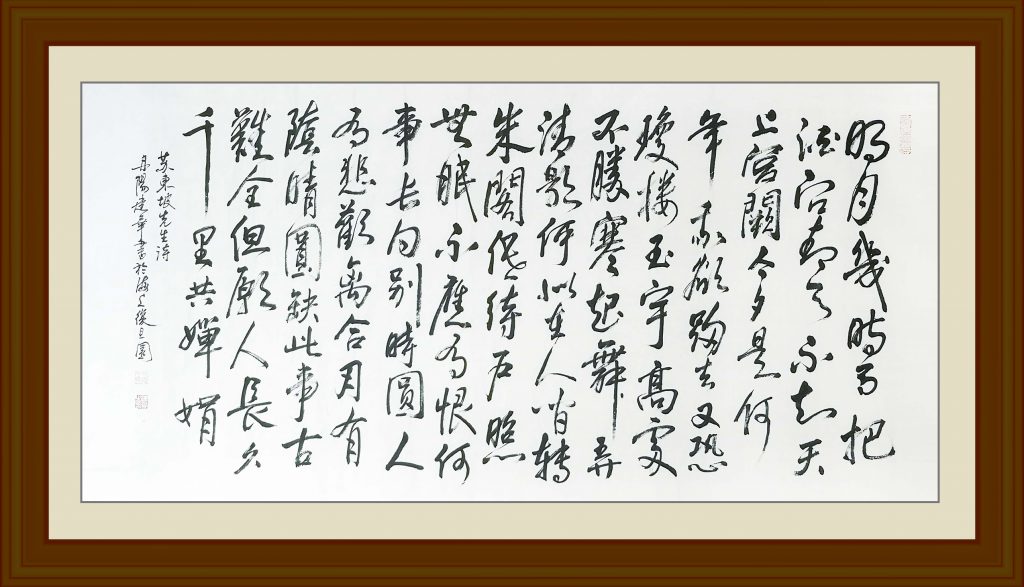 明月幾時有把
酒问青天不知天
上宫闕今夕是何
年我欲歸去又恐
瓊楼玉宇髙處
不勝寒起舞弄
清影何似在人间轉
朱閣低绮户照
無眠不應有恨何
事长向别時圓人
有悲歡离合月有
陰晴圓缺此事古
難全但願人長久
千里共嬋娟
苏東坡先生詩
丹陽建章書於海上復旦園